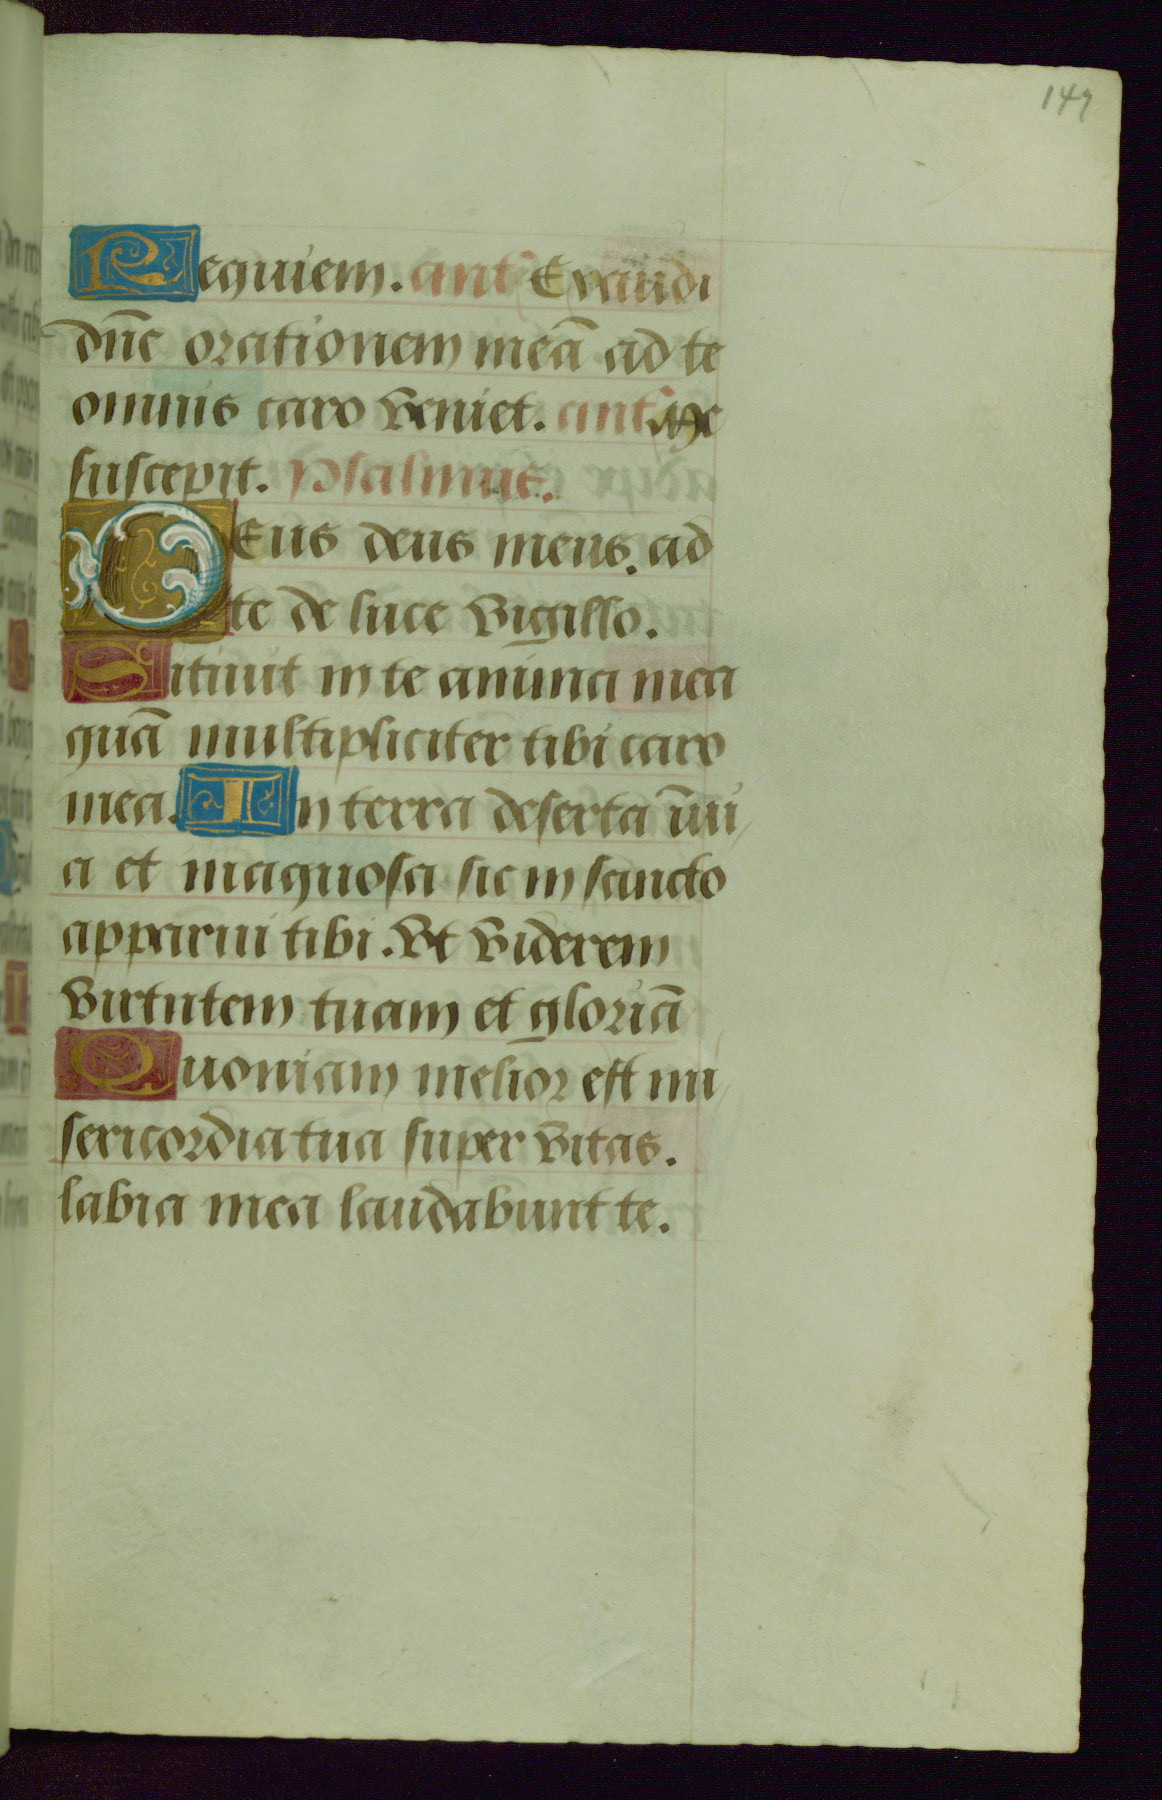 147
Requiem. antˀ Exaudi
dn̄e orationem meā ad te
omnis caro veniet. antˀ Me
suscepit. Psalmus.
Deus deus meus. ad
te de luce vigillo.
Sitiuit in te anima mea
quā multipliciter tibi caro
mea. In terra deserta īui
a et inaquosa sic in sancto
apparui tibi. Vt viderem
virtutem tuam et gloriā
Quoniam melior est mi
sericordia tua super vitas.
labia mea laudabunt te.